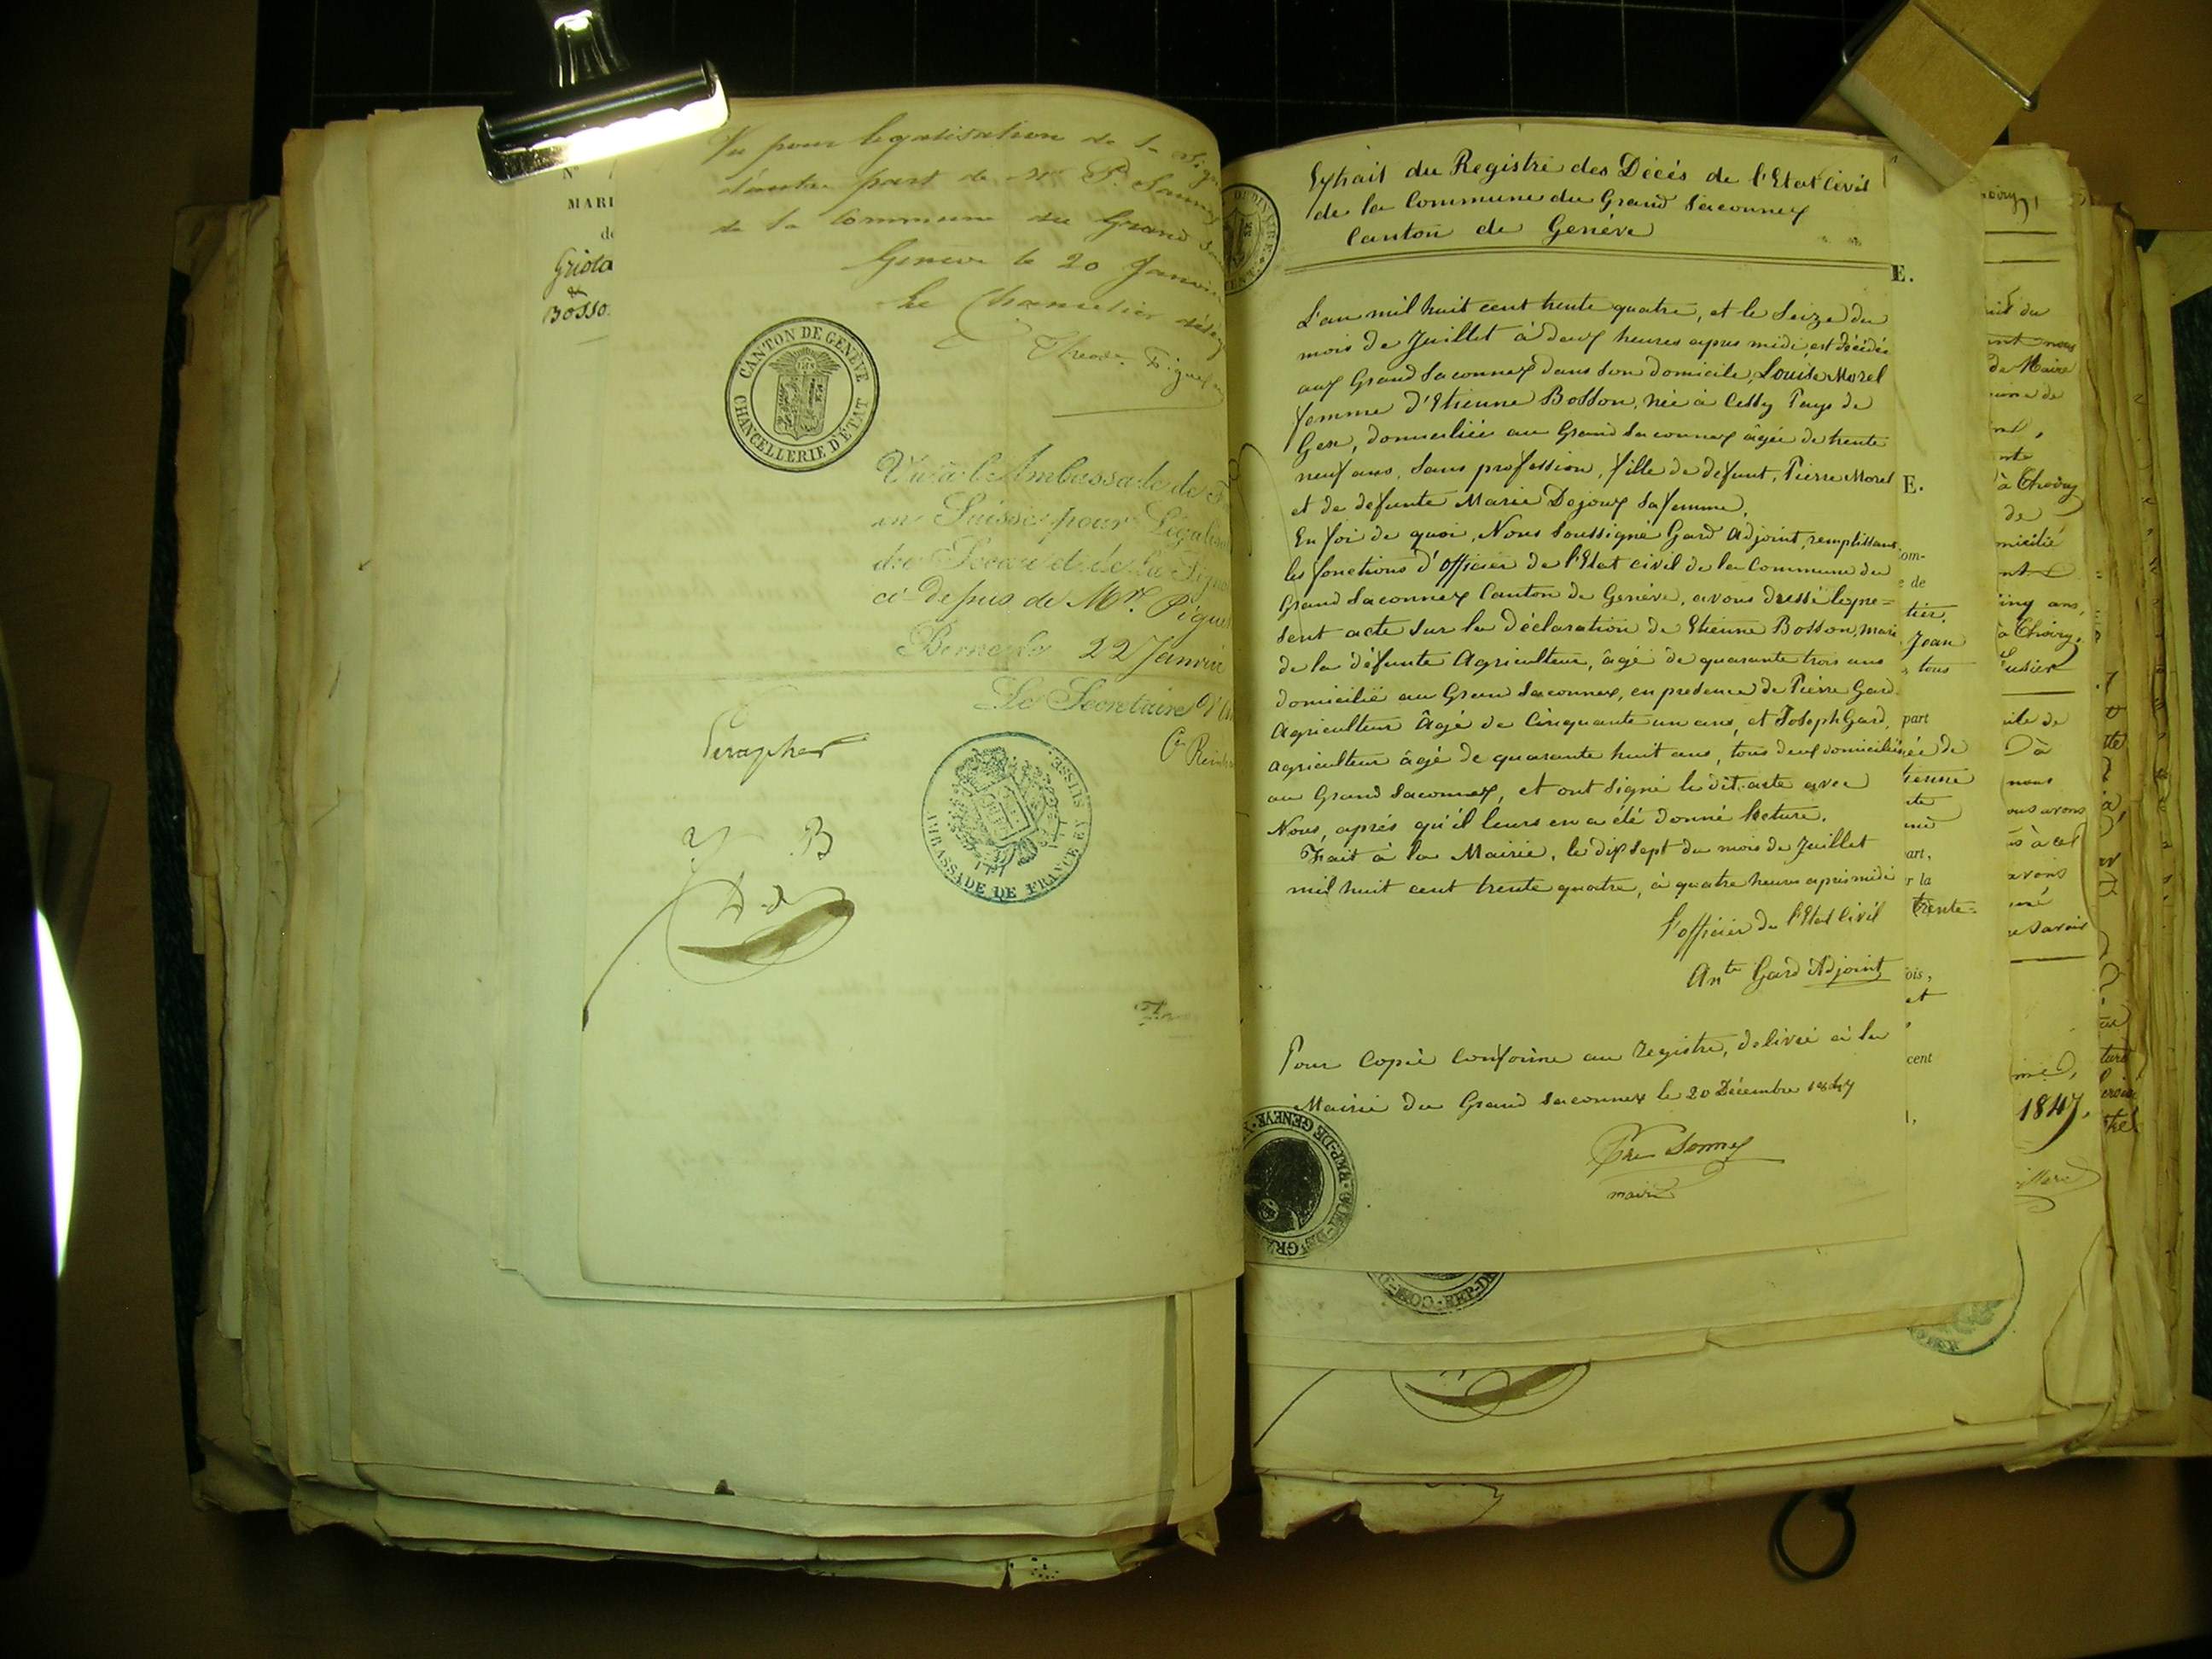 Vu pour légalisation de la
d'autre part de Mr P.
de la Commune du Grand
Genève le 20 Janvier
Le Chancelier
CANTON DE GENÈVE
CHANCELLERIE D'ÉTAT
Vu à l'Ambassade de
en Suisse pour
du Sceau et de la
ci-dessus de Mr. Piguet
Berne le 22 Janvier
Le Secrétaire
AMBASSADE DE FRANCE EN SUISSE
N°
MARI
de
Griota
&
Bosso
Extrait du Registre des Décès de l'Etat Civil
de la Commune du Grand Saconnex
Canton de Genève
L'an mil huit cent trente quatre, et le Seize du
mois de Juillet à deux heures apres midi, est décédée
aux Grand Saconnex dans son domicile, Louise Morel
femme d'Etienne Bosson, née à Cessy Pays de
Gex, domiciliée au Grand Saconnex âgée de trente
neuf ans, Sans profession, fille de défunt, Pierre Morel
et de défunte Marie Dejoux sa femme.
En foi de quoi, Nous Soussigné Gard Adjoint, remplissant
les fonctions d'officier de l'Etat civil de la Commune du
Grand Saconnex Canton de Genève, avons dressé le pré=
sent acte sur la déclaration de Etienne Bosson, mari
de la défunte Agriculteur, âgé de quarante trois ans
domicilié au Grand Saconnex, en présence de Pierre Gard.
Agriculteur âgé de Cinquante un ans, et Joseph Gard,
agriculteur âgé de quarante huit ans, tous deux domiciliés
au Grand Saconnex, et ont signé le dit acte avec
Nous, après qu'il leurs en a été donné lecture.
Fait à la Mairie, le dix sept du mois de Juillet
mil huit cent trente quatre, à quatre heures après midi
L'officier de l'Etat Civil
Ante Gard Adjoint
Pour Copie Conforme au Registre, délivrée à la
Mairie du Grand Saconnex le 20 Décembre 1847
maire
E.
E.
om-
e de
tier,
Jean
tous
part
née de
tienne
art,
r la
trente=
ois,
et
cent
de Maire
à Choiry
de
micilié
ing ans,
à Choiry,
nous
ous avons
avons
1847.